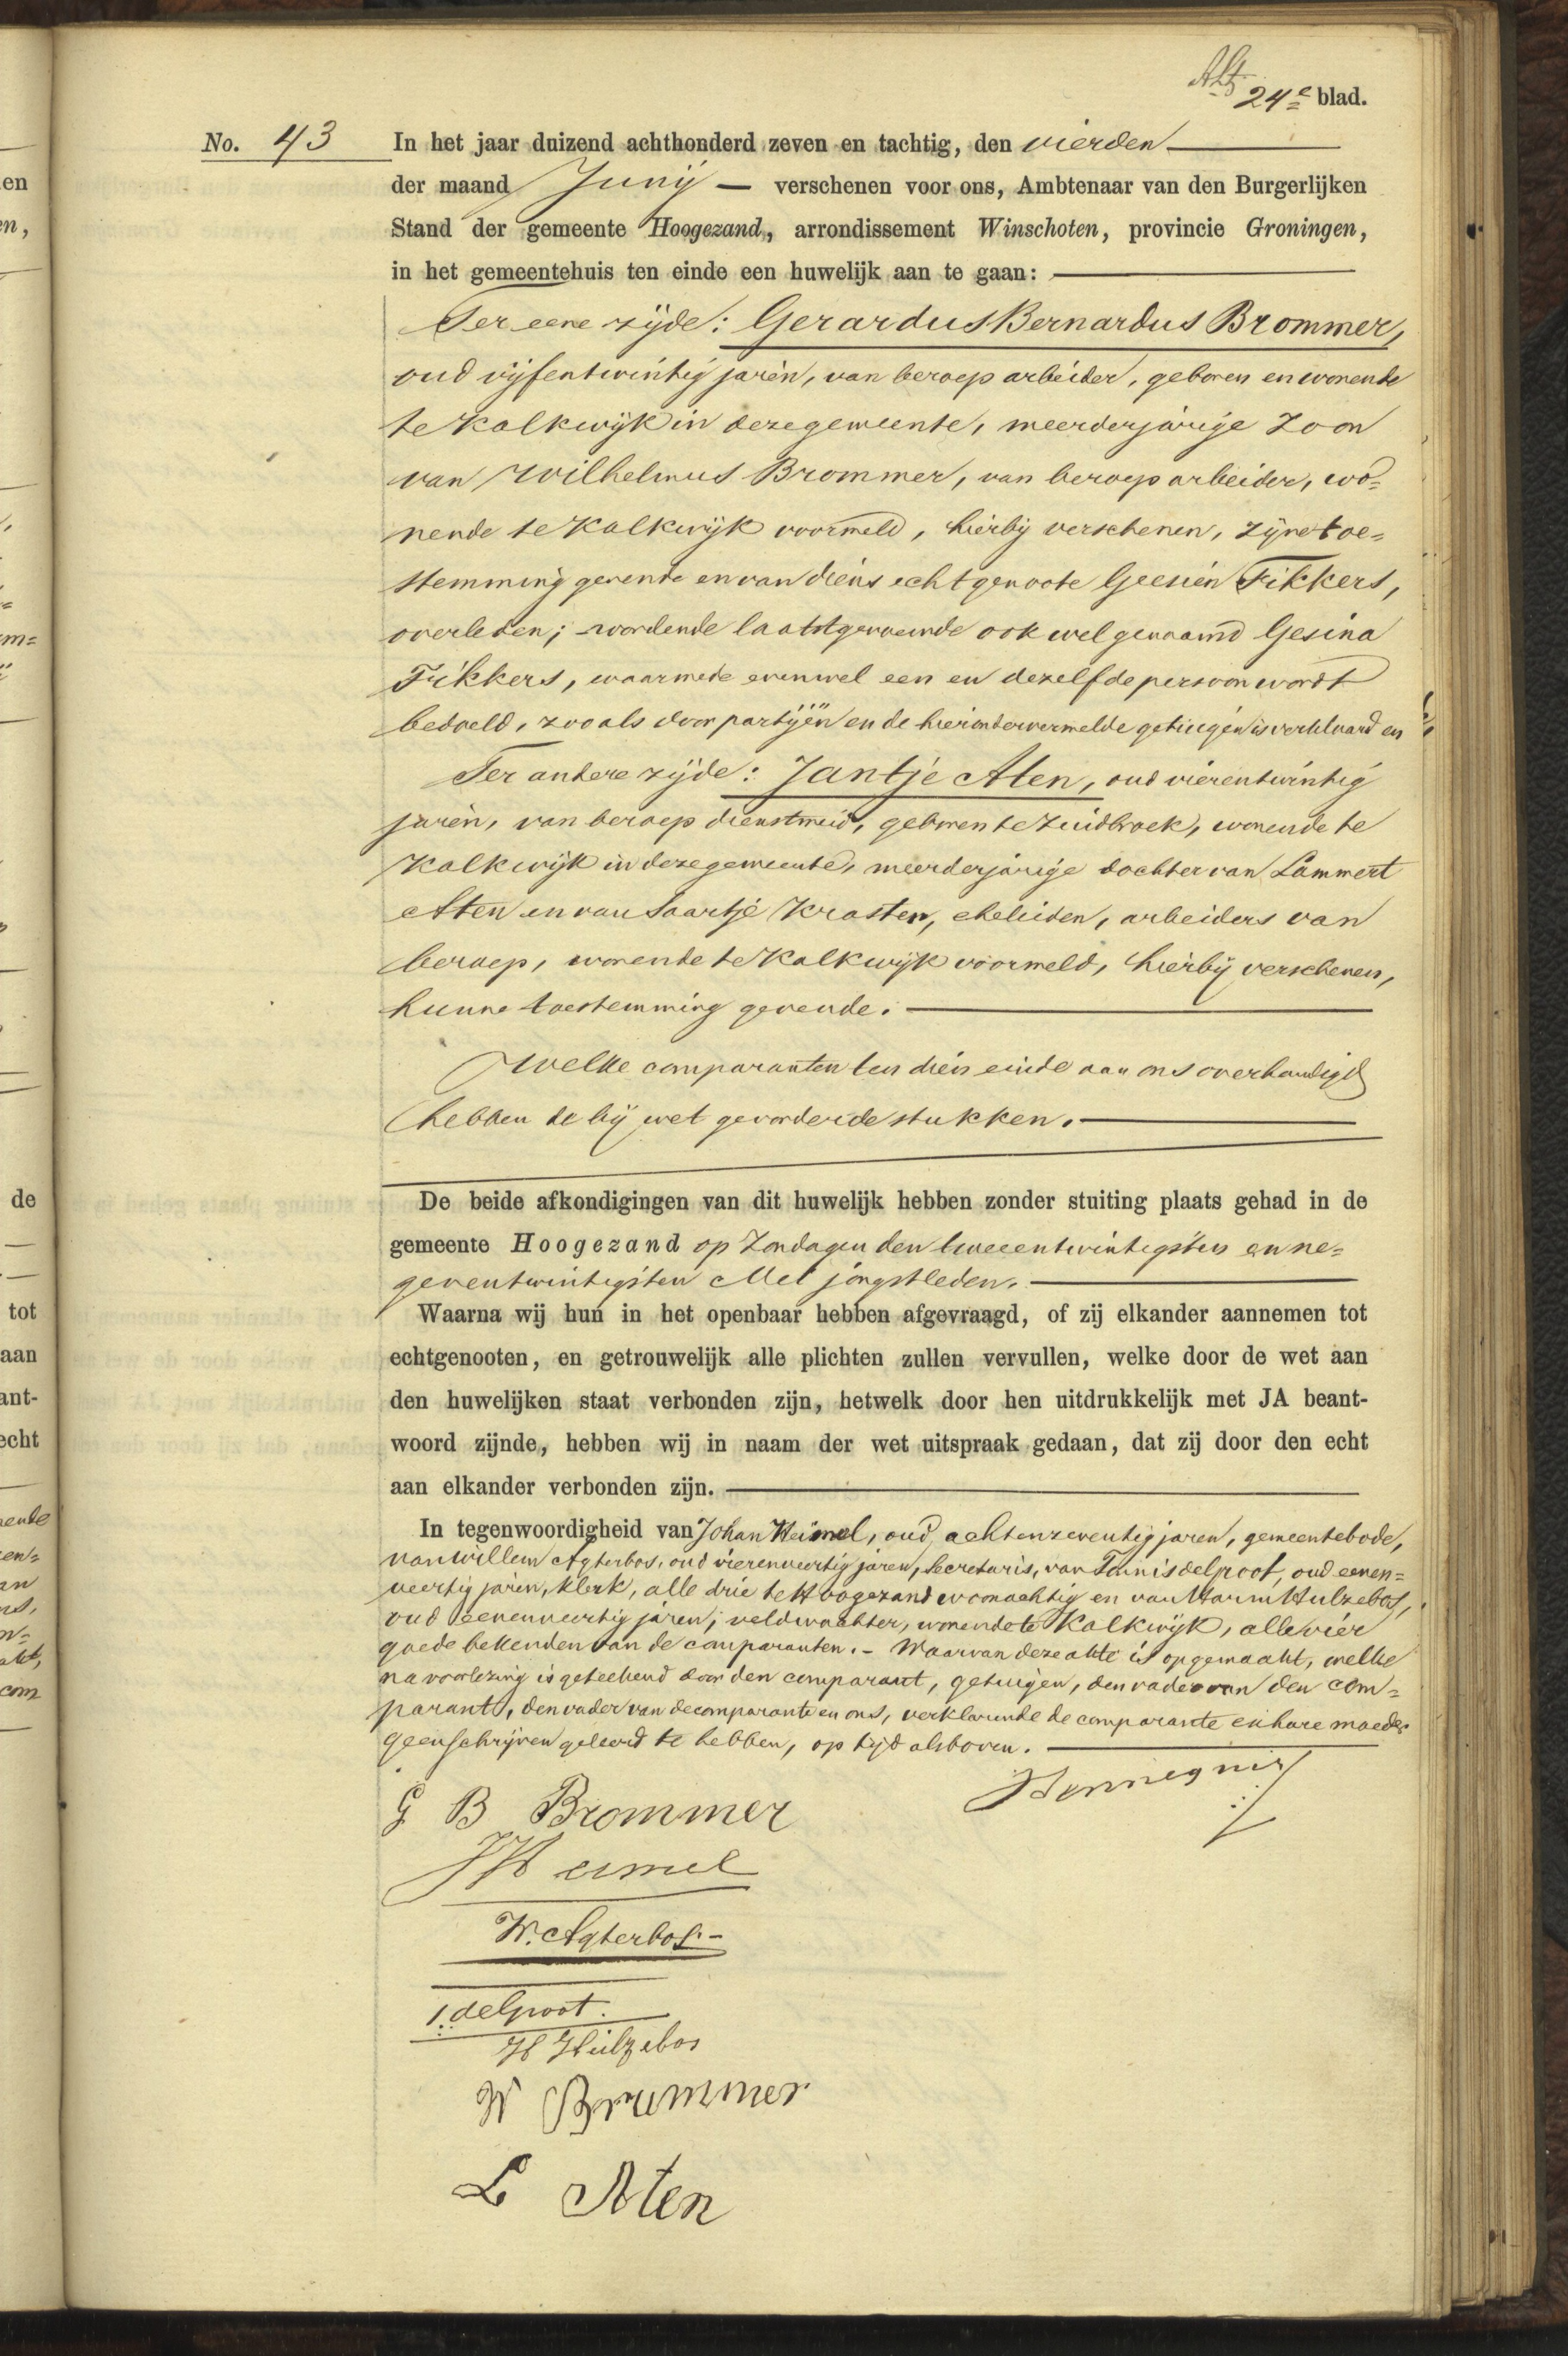 24e blad.
No. 43
In het jaar duizend achthonderd zeven en tachtig, den vierden
der maand Junij verschenen voor ons, Ambtenaar van den Burgerlijken
Stand der gemeente Hoogezand, arrondissement Winschoten, provincie Groningen,
in het gemeentehuis ten einde een huwelijk aan te gaan:
Ter eene zijde: Gerardus Bernardus Brommer,
oud vijfentwintig jaren, van beroep arbeider, geboren en wonende
te Kalkwijk in deze gemeente, meerderjarige Zoon
van Wilhelmus Brommer, van beroep arbeider, wo=
nende te Kalkwijk voormeld, hierbij verschenen, zijne toe=
stemming gevende en van diens echtgenoote Geesien Fikkers,
overleden; wordende laatstgenoemde ook wel genaamd Gesina
Fikkers, waarmede evenwel een en dezelfde persoon wordt
bedoeld, zooals door partijën en de hierondervermelde getuigen is verklaard en
Ter andere zijde: Jantje Aten, oud vierentwintig
jaren, van beroep dienstmeid, geboren te Zuidbroek, wonende te
Kalkwijk in deze gemeente, meerderjarige dochter van Lammert
Aten en van Saartje Kraster, echelieden, arbeiders van
beroep, wonende te Kalkwijk voormeld, hierbij verschenen,
hunne toestemming gevende.
Welke comparanten ten dien einde aan ons overhandigd
hebben de bij wet gevorderde stukken.
De beide afkondigingen van dit huwelijk hebben zonder stuiting plaats gehad in de
gemeente Hoogezand op Zondagen den tweeentwintigsten en ne=
genentwintigsten Mei jongstleden.
Waarna wij hun in het openbaar hebben afgevraagd, of zij elkander aannemen tot
echtgenooten, en getrouwelijk alle plichten zullen vervullen, welke door de wet aan
den huwelijken staat verbonden zijn, hetwelk door hen uitdrukkelijk met JA beant-
woord zijnde, hebben wij in naam der wet uitspraak gedaan, dat zij door den echt
aan elkander verbonden zijn.
In tegenwoordigheid van Johan Heimel, oud achtenzeventig jaren, gemeentebode,
van Willem Agterbos, oud vierenveertig jaren, Secretaris, van Tonnis delgroot, oud eenen=
veertig jaren, klerk, alle drie te Hoogezand woonachtig en van Harm Hulzebos,
oud eenenveertig jaren, veldwachter, wonende te Kalkwijk, alle vier
goede bekenden van de comparanten. - Waarvan deze akte is opgemaakt, welke
na voorlezing is geteekend door den comparant, getuigen, den vader van den com=
parant, den vader van de comparante en ons, verklarende de comparante en hare moeder
geen schrijven geleerd te hebben, op tijd als boven.
G B Brommer
JHeimel
W. Agterbos.-
T. delgroot.
H Hulzebos
W Brommer
L Aten